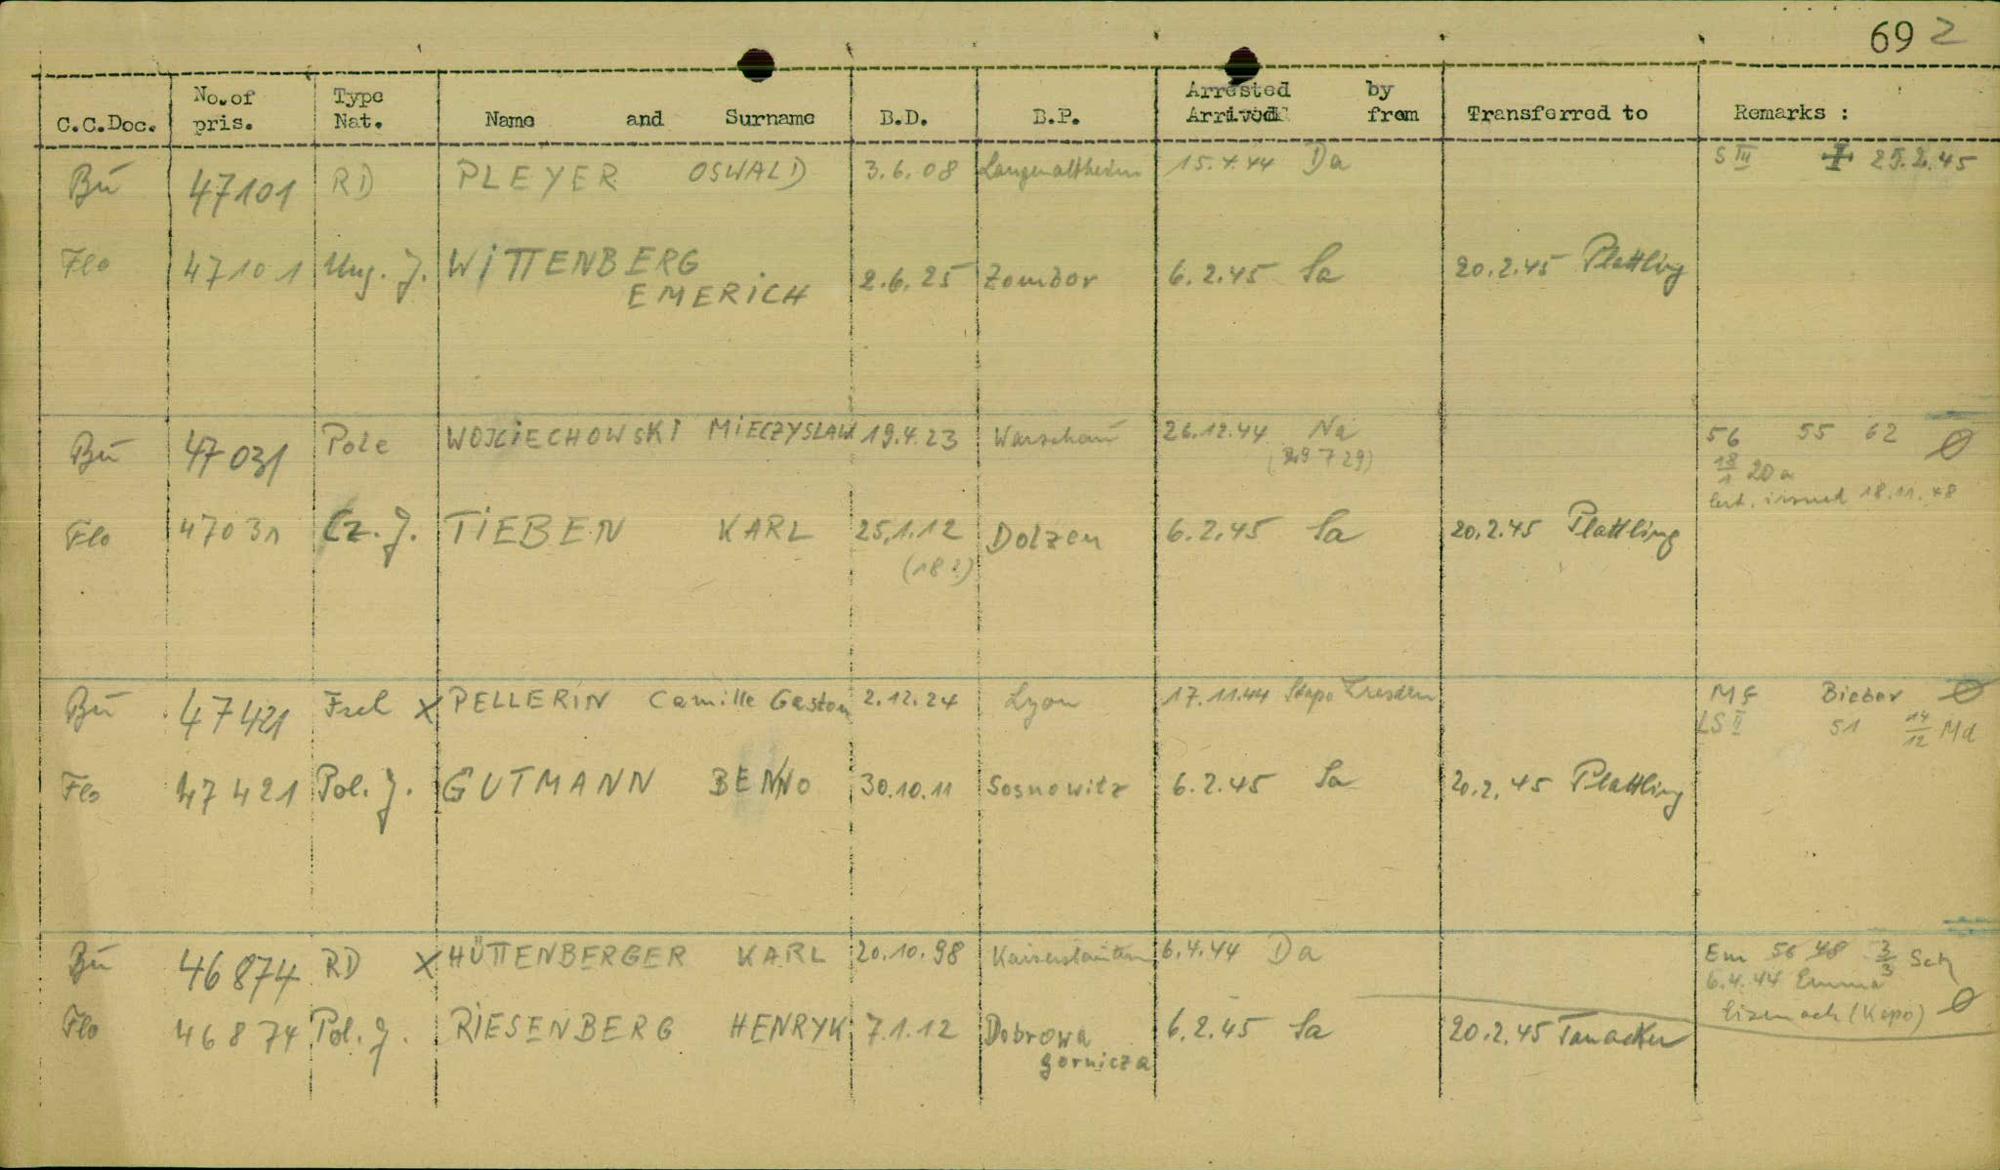 692
C.C.Doc. No. of pris. Type Nat. Name and Surname B.D. B.P. Arrested by Arrived from Transferred to Remarks :
Bu 47101 RD PLEYER OSWALD 3.6.08 Langenaltheim 15.4.44 Da S III 25.2.45
Flo 47101 Ung. J. WITTENBERG EMERICH 2.6.25 Zombor 6.2.45 Sa 20.2.45 Plattling
Bu 47031 Pole WOJCIECHOWSKI MIECZYSLAW 19.4.23 Warschau 26.12.44 Na 56 55 62 Ø
(29729) 18/1 20a
Cert. issued 18.11.48
Flo 47031 Cz. J. TIEBEN KARL 25.1.12 Dolzen 6.2.45 Sa 20.2.45 Plattling
(18?)
Bu 47421 X PELLERIN Camille Gaston 2.12.24 Lyon 17.11.44 Stapo Bieber Ø
LS II 51 14/12 Md
Flo 47421 Pol. J. GUTMANN BENNO 30.10.11 Sosnowitz 6.2.45 Sa 20.2.45 Plattling
Bu 46874 RD X HÜTTENBERGER KARL 20.10.98 Kaiserslautern 6.4.44 Da Em 56 48 3/3 Sch
6.4.44 Emma
Eisenach (Kapo) Ø
Flo 46874 Pol. J. RIESENBERG HENRYK 7.1.12 Dobrowa gornicza 6.2.45 Sa 20.2.45